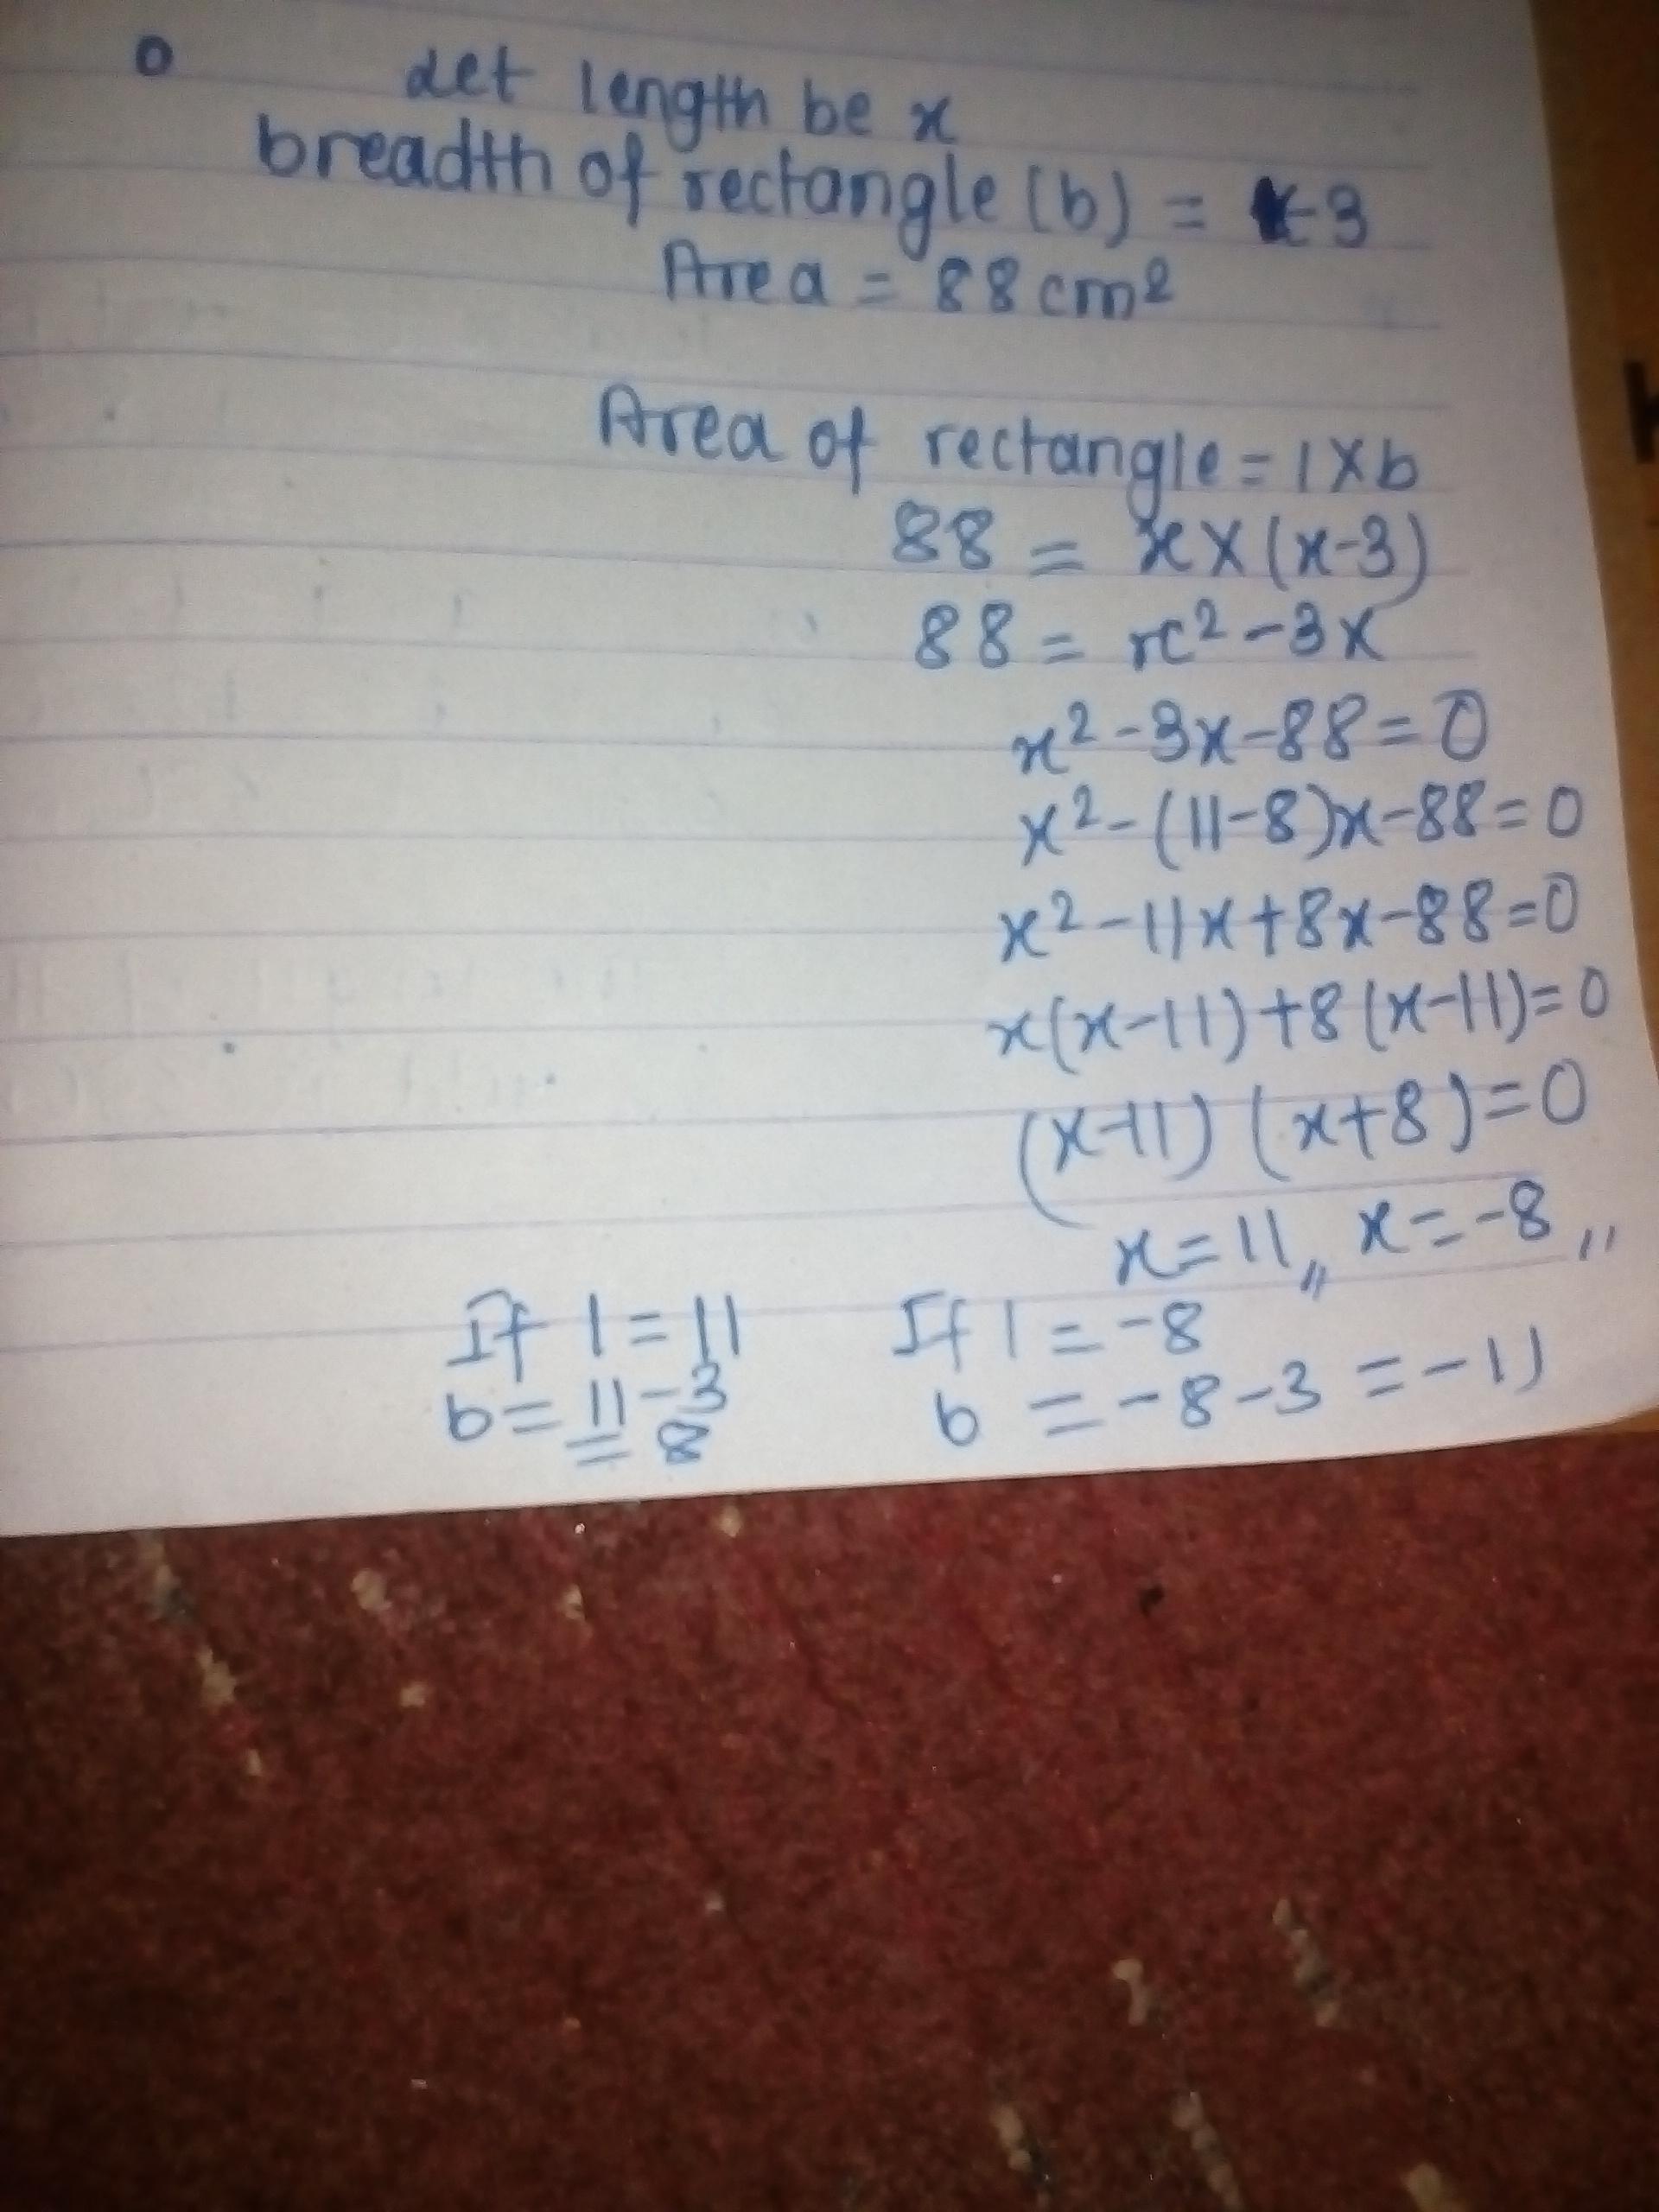 Let length be x
breadth of rectangle (b) = x-3
Area = 88 cm²
Area of rectangle = l×b
88 = x×(x-3)
88 = x²-3x
x²-3x-88=0
x²-(11-8)x-88=0
x²-11x+8x-88=0
x(x-11)+8(x-11)=0
(x-11) (x+8)=0
x=11,, x=-8,,
If l=11 If l=-8
b=11-3 b=-8-3=-11
=8